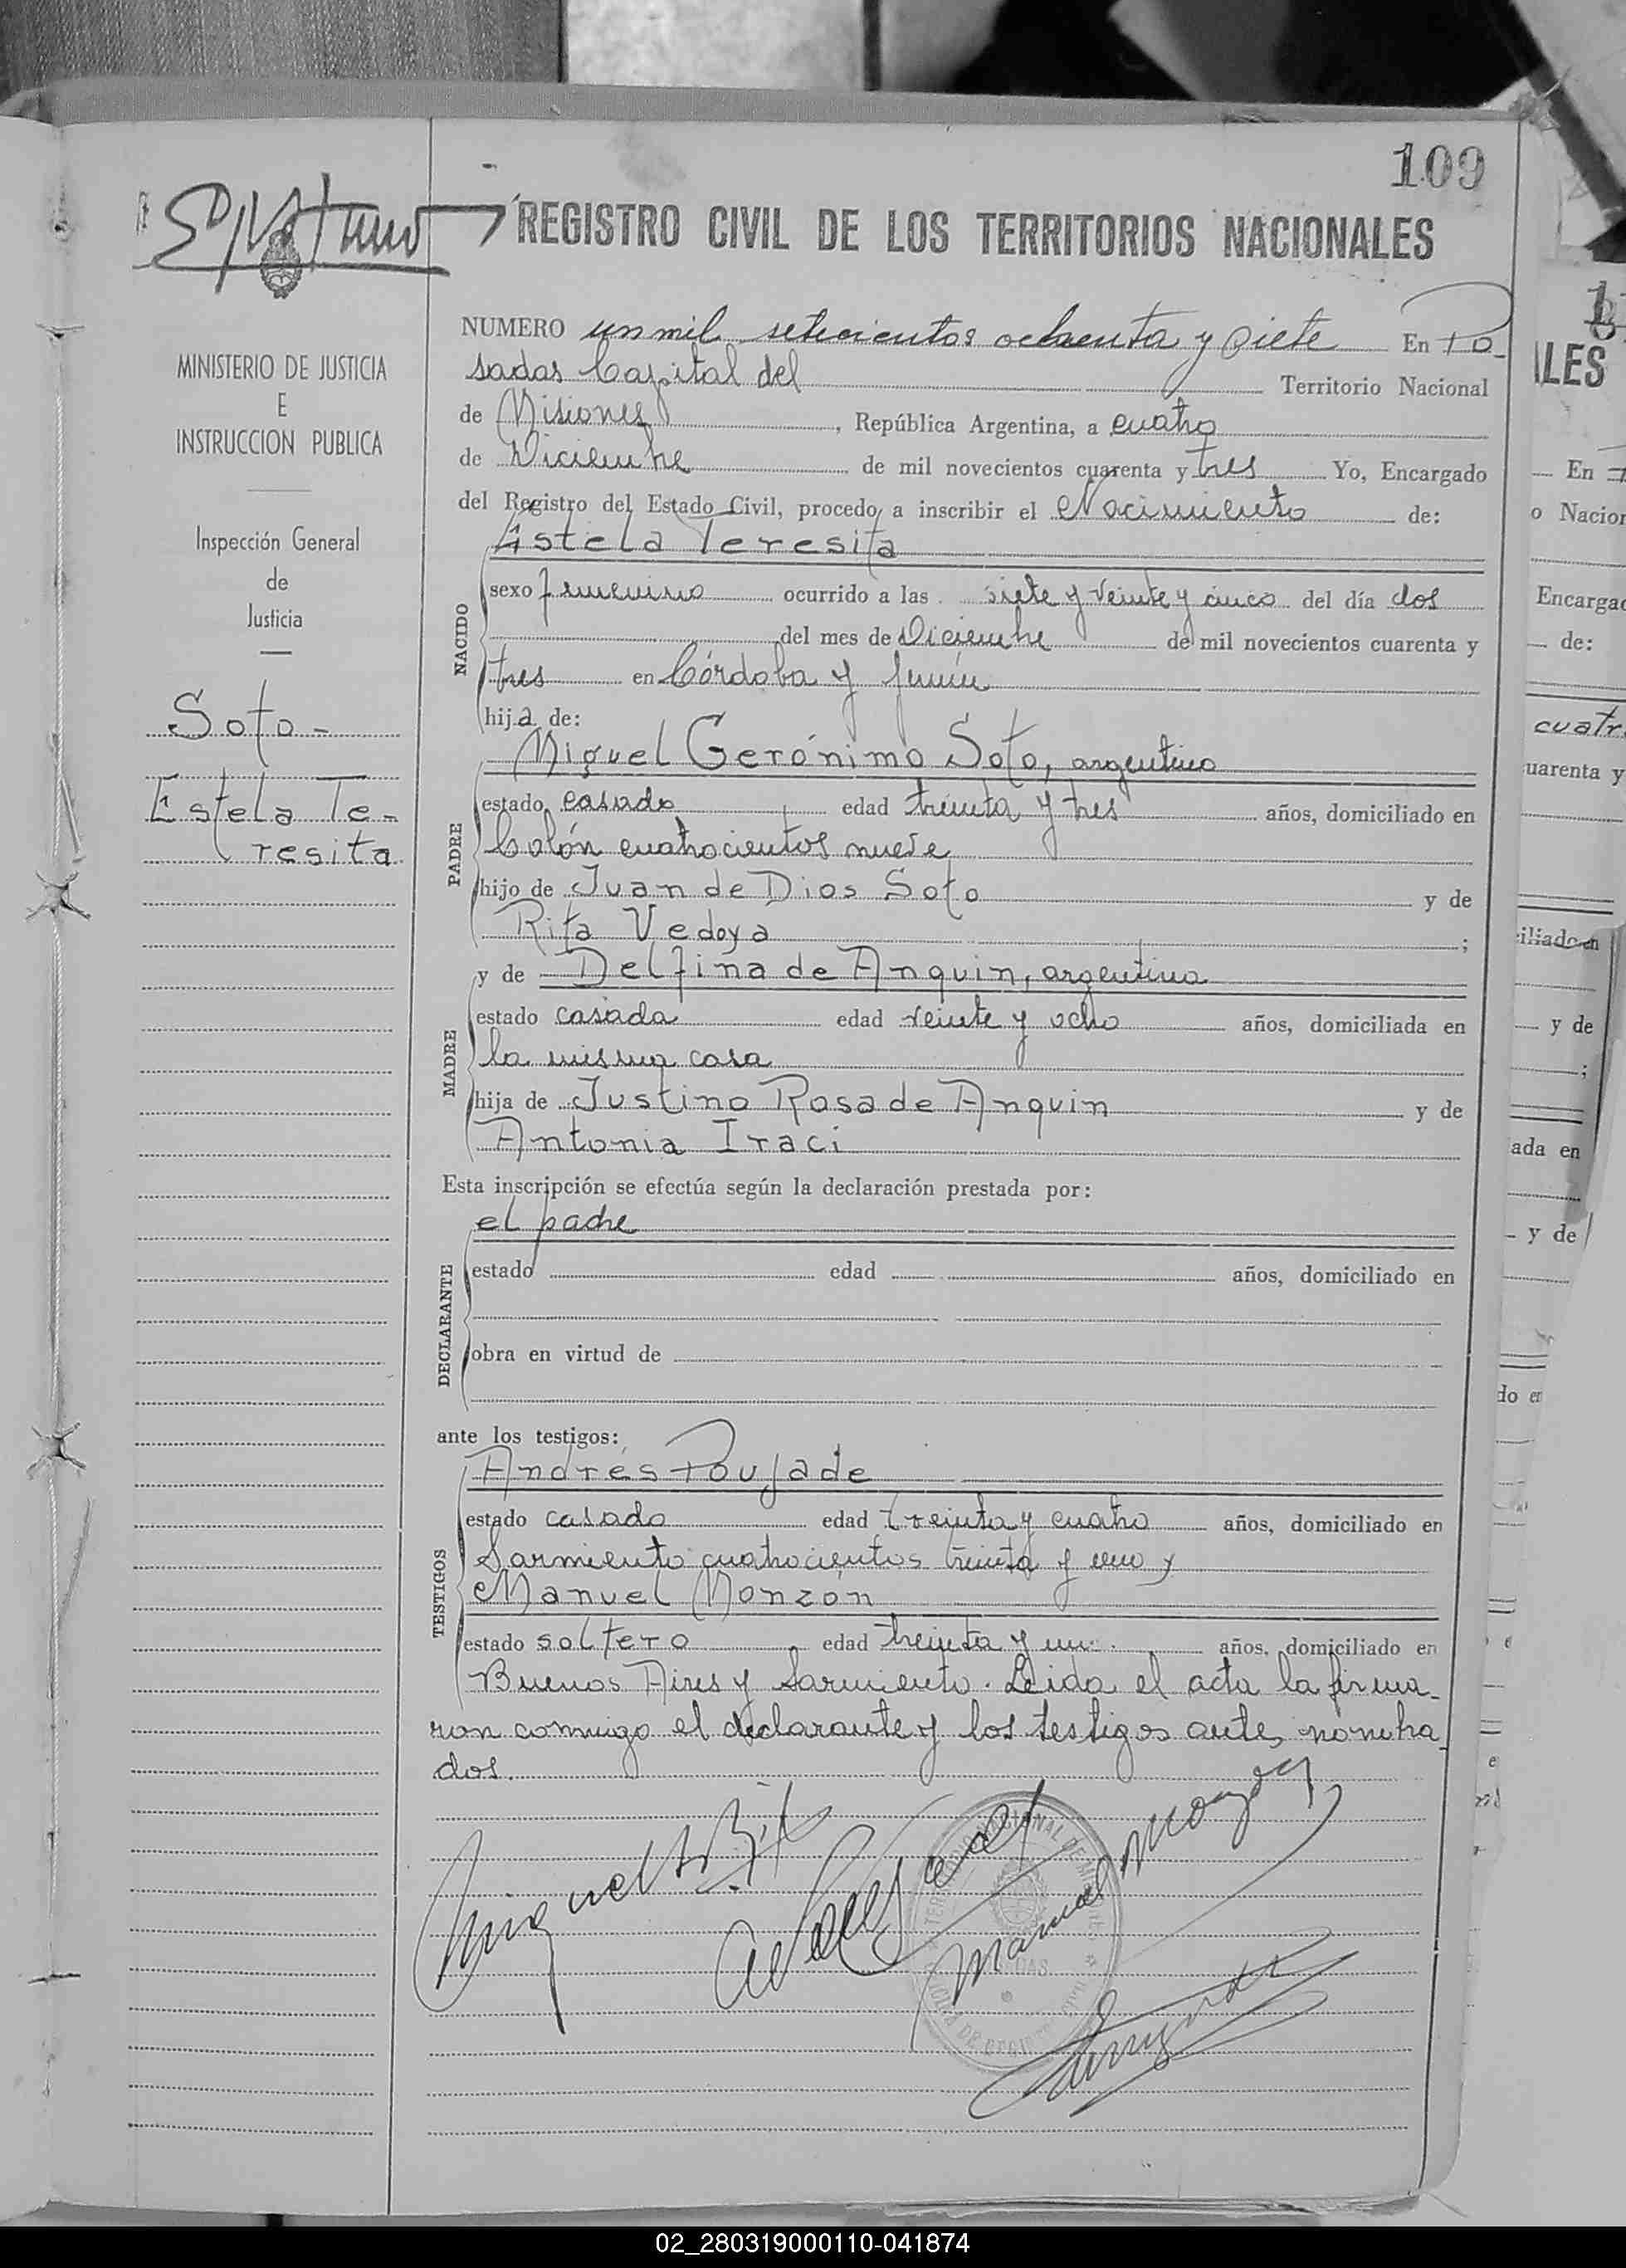 109
REGISTRO CIVIL DE LOS TERRITORIOS NACIONALES
MINISTERIO DE JUSTICIA
E
INSTRUCCION PUBLICA
Inspección General
de
Justicia
Soto-
Estela Te-
resita
NUMERO un mil setecientos ochenta y siete En Po-
sadas Capital del Territorio Nacional
de Misiones, República Argentina, a cuatro
de Diciembre de mil novecientos cuarenta y tres Yo, Encargado
del Registro del Estado Civil, procedo a inscribir el Nacimiento de:
Estela Teresita
NACIDO
sexo femenino ocurrido a las siete y veinte y cinco del día dos
del mes de Diciembre de mil novecientos cuarenta y
tres en Córdoba y Junín
hija de:
Miguel Gerónimo Soto, argentino
PADRE
estado casado edad treinta y tres años, domiciliado en
Colón cuatrocientos nueve
hijo de Juan de Dios Soto y de
Rita Vedoya;
y de Delfina de Anquin, argentina
MADRE
estado casada edad veinte y ocho años, domiciliada en
la misma casa
hija de Justino Rosa de Anquin y de
Antonia Iraci
Esta inscripción se efectúa según la declaración prestada por:
el padre
DECLARANTE
estado edad años, domiciliado en
obra en virtud de
ante los testigos:
Andrés Poujade
TESTIGOS
estado casado edad treinta y cuatro años, domiciliado en
Sarmiento cuatrocientos treinta y uno y
Manuel Monzón
estado soltero, edad treinta y un años, domiciliado en
Buenos Aires y Sarmiento. Leida el acta la firma-
ron conmigo el declarante y los testigos ante nombra-
dos.
Manuel Monzón
02_280319000110-041874